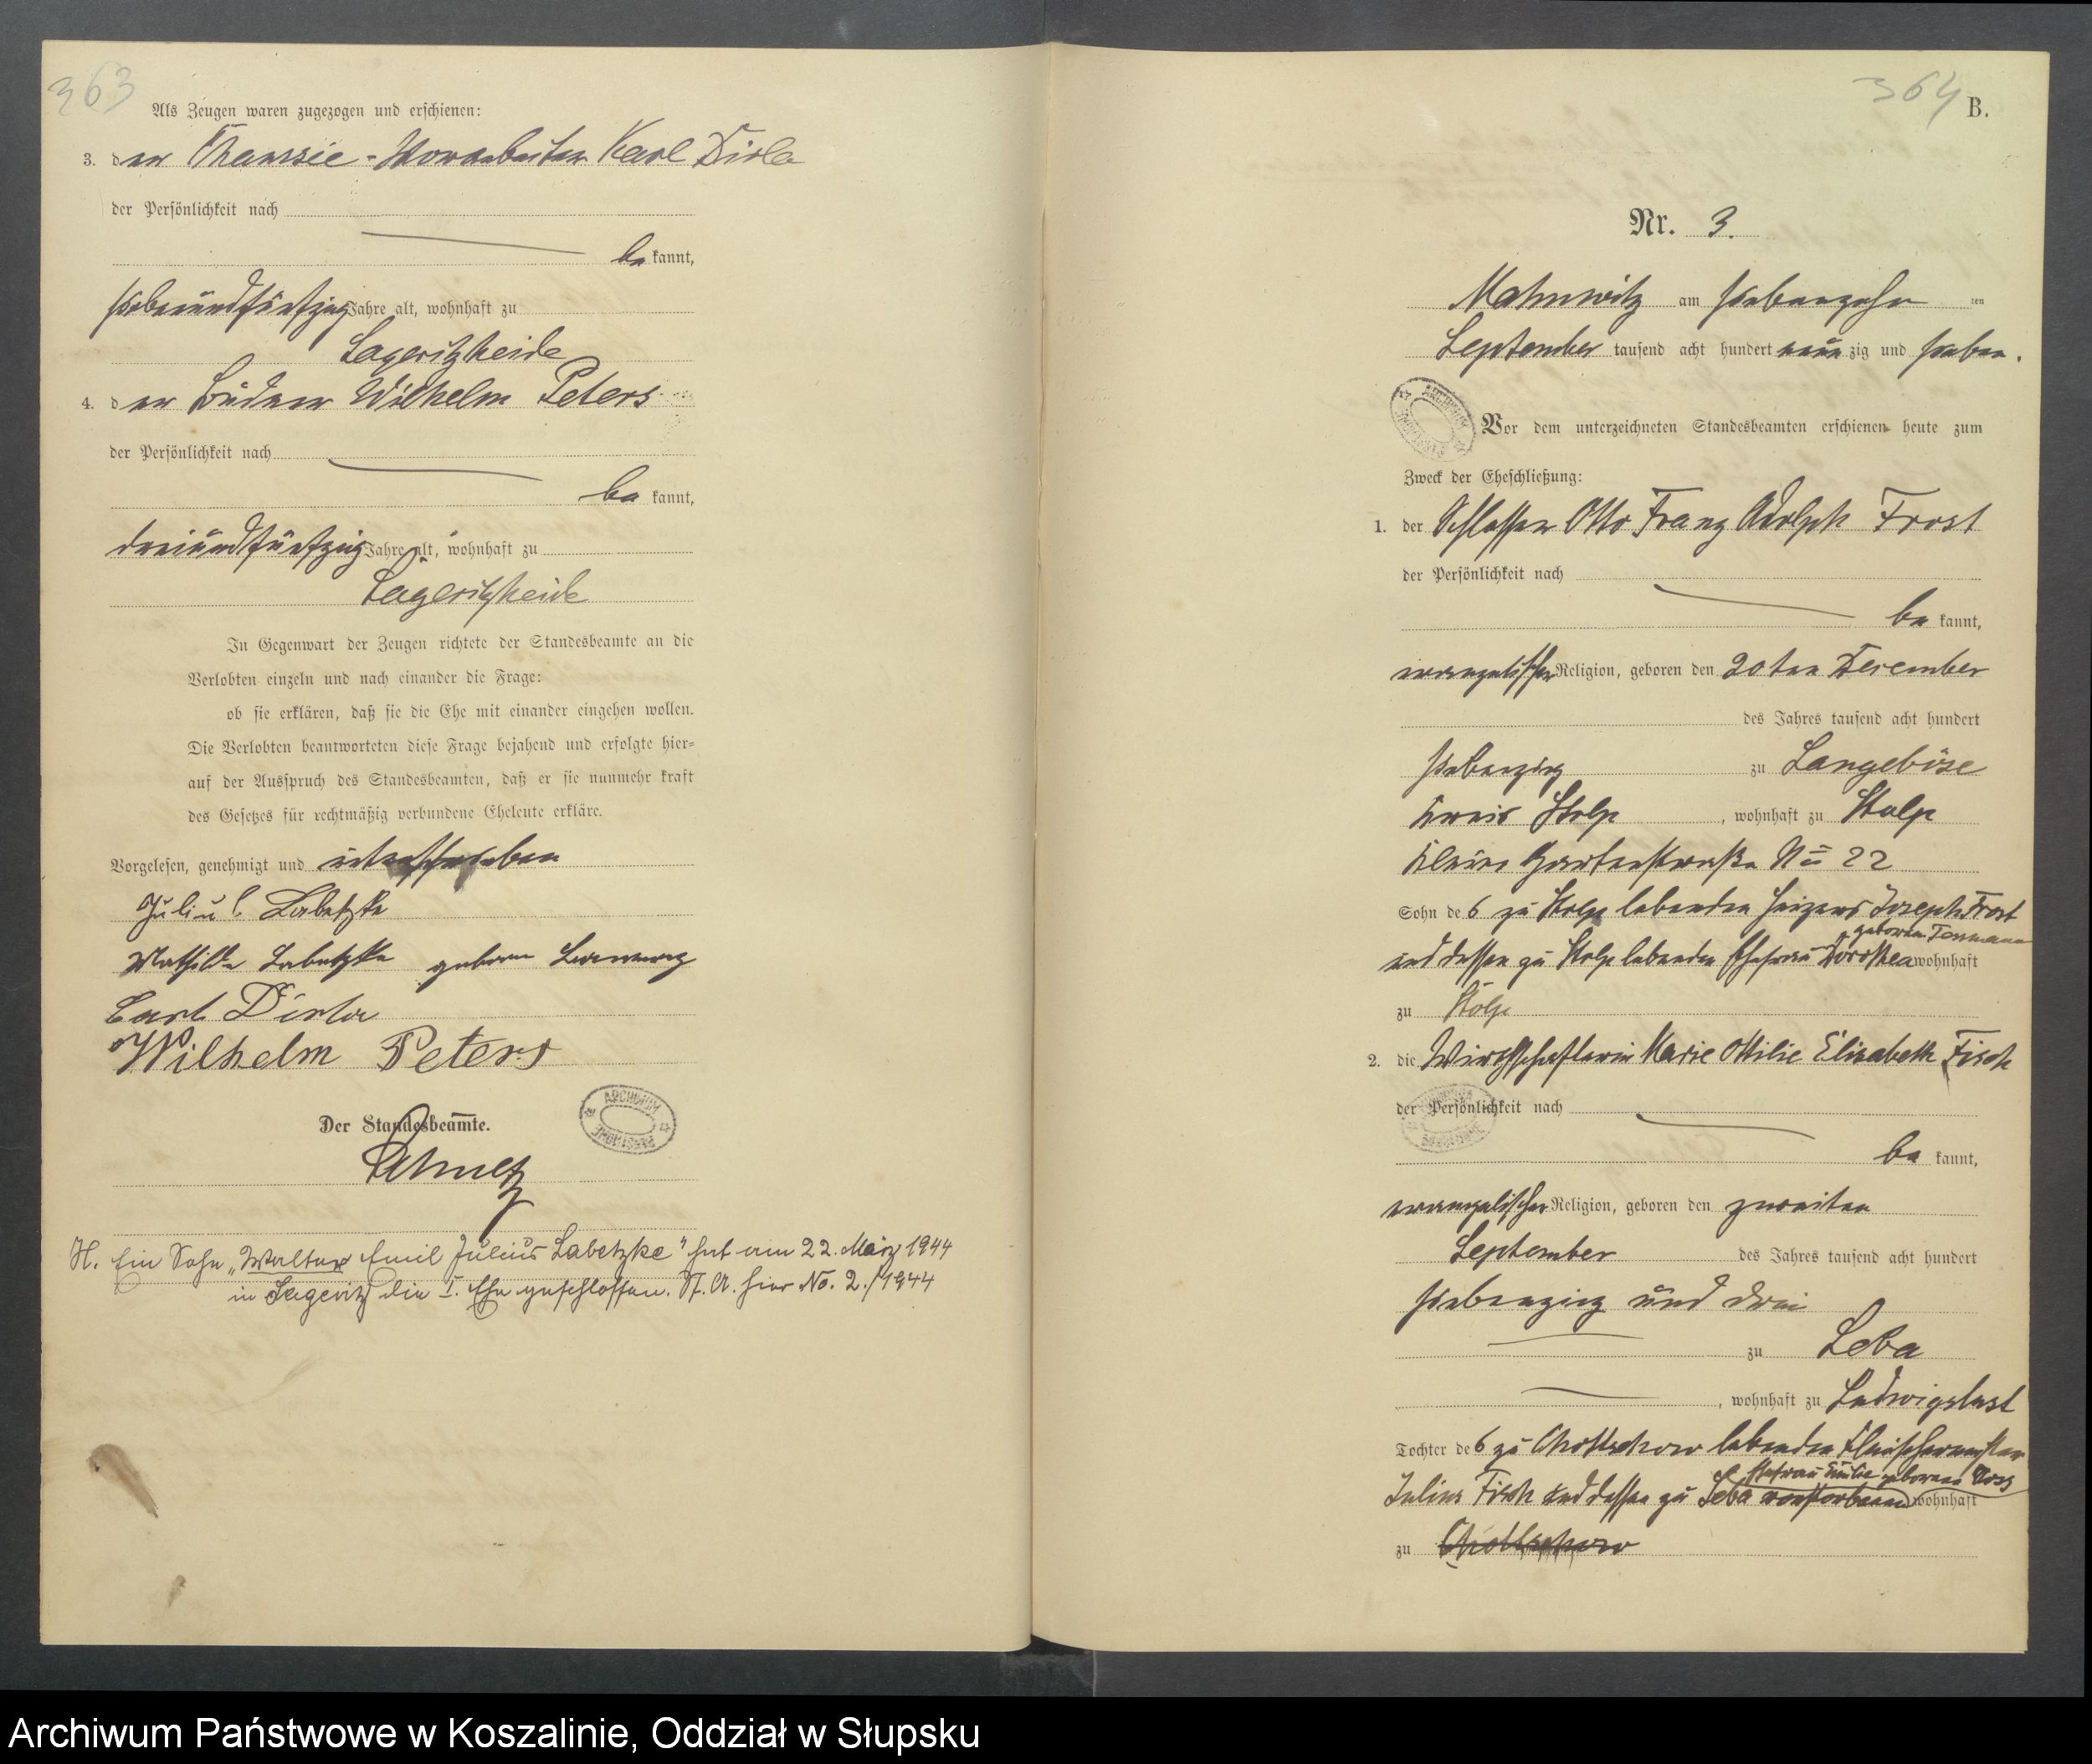 363
Als Zeugen waren zugezogen und erschienen:
3. der Chaussee-Vorarbeiter Karl Dirla
der Persönlichkeit nach
be kannt,
siebenundfünfzig Jahre alt, wohnhaft zu
Lageritzheide
4. der Büdner Wilhelm Peters
der Persönlichkeit nach
be kannt,
dreiundfünfzig Jahre alt, wohnhaft zu
Lageritzheide
In Gegenwart der Zeugen richtete der Standesbeamte an die
Verlobten einzeln und nach einander die Frage:
ob sie erklären, daß sie die Ehe mit einander eingehen wollen.
Die Verlobten beantworteten diese Frage bejahend und erfolgte hier-
auf der Ausspruch des Standesbeamten, daß er sie nunmehr kraft
des Gesetzes für rechtmäßig verbundene Eheleute erkläre.
Vorgelesen, genehmigt und unterschrieben
Julius Labetzke
Mathilde Labetzke geborne
Carl Dirla
Wilhelm Peters
Der Standesbeamte.
ARCHIWUM PAŃSTWOWE
H. Ein Sohn „Walter Emil Julius Labetzke" hat am 22. März 1944
in Lageritz die I. Ehe geschlossen. St. A. hier No. 2./1944
364
B.
Nr. 3.
Mahnwitz am siebenzehn ten
September tausend acht hundert neun zig und sieben.
ARCHIWUM PAŃSTWOWE
Vor dem unterzeichneten Standesbeamten erschienen heute zum
Zweck der Eheschließung:
1. der Schlosser Otto Franz Adolph Frost
der Persönlichkeit nach
be kannt,
evangelischer Religion, geboren den 20ten Dezember
des Jahres tausend acht hundert
siebenzig zu Langeböse
Kreis Stolp, wohnhaft zu Stolp
Kleine Gartenstraße No 22
Sohn des zu Stolp lebenden Heizers Joseph Frost
und dessen zu Stolp lebenden Ehefrau Dorothea geborene wohnhaft
zu Stolp
2. die Wirthschafterin Marie Ottilie Elisabeth Fisch
der Persönlichkeit nach
ARCHIWUM PAŃSTWOWE
be kannt,
evangelischer Religion, geboren den zweiten
September des Jahres tausend acht hundert
siebenzig und drei
zu Leba
, wohnhaft zu Ludwigslust
Tochter des zu Chottschow lebenden Fleischermeister
Ehefrau Emilie geborene
Julius Fisch und dessen zu Leba verstorbenen wohnhaft
zu Chottschow
Archiwum Państwowe w Koszalinie, Oddział w Słupsku